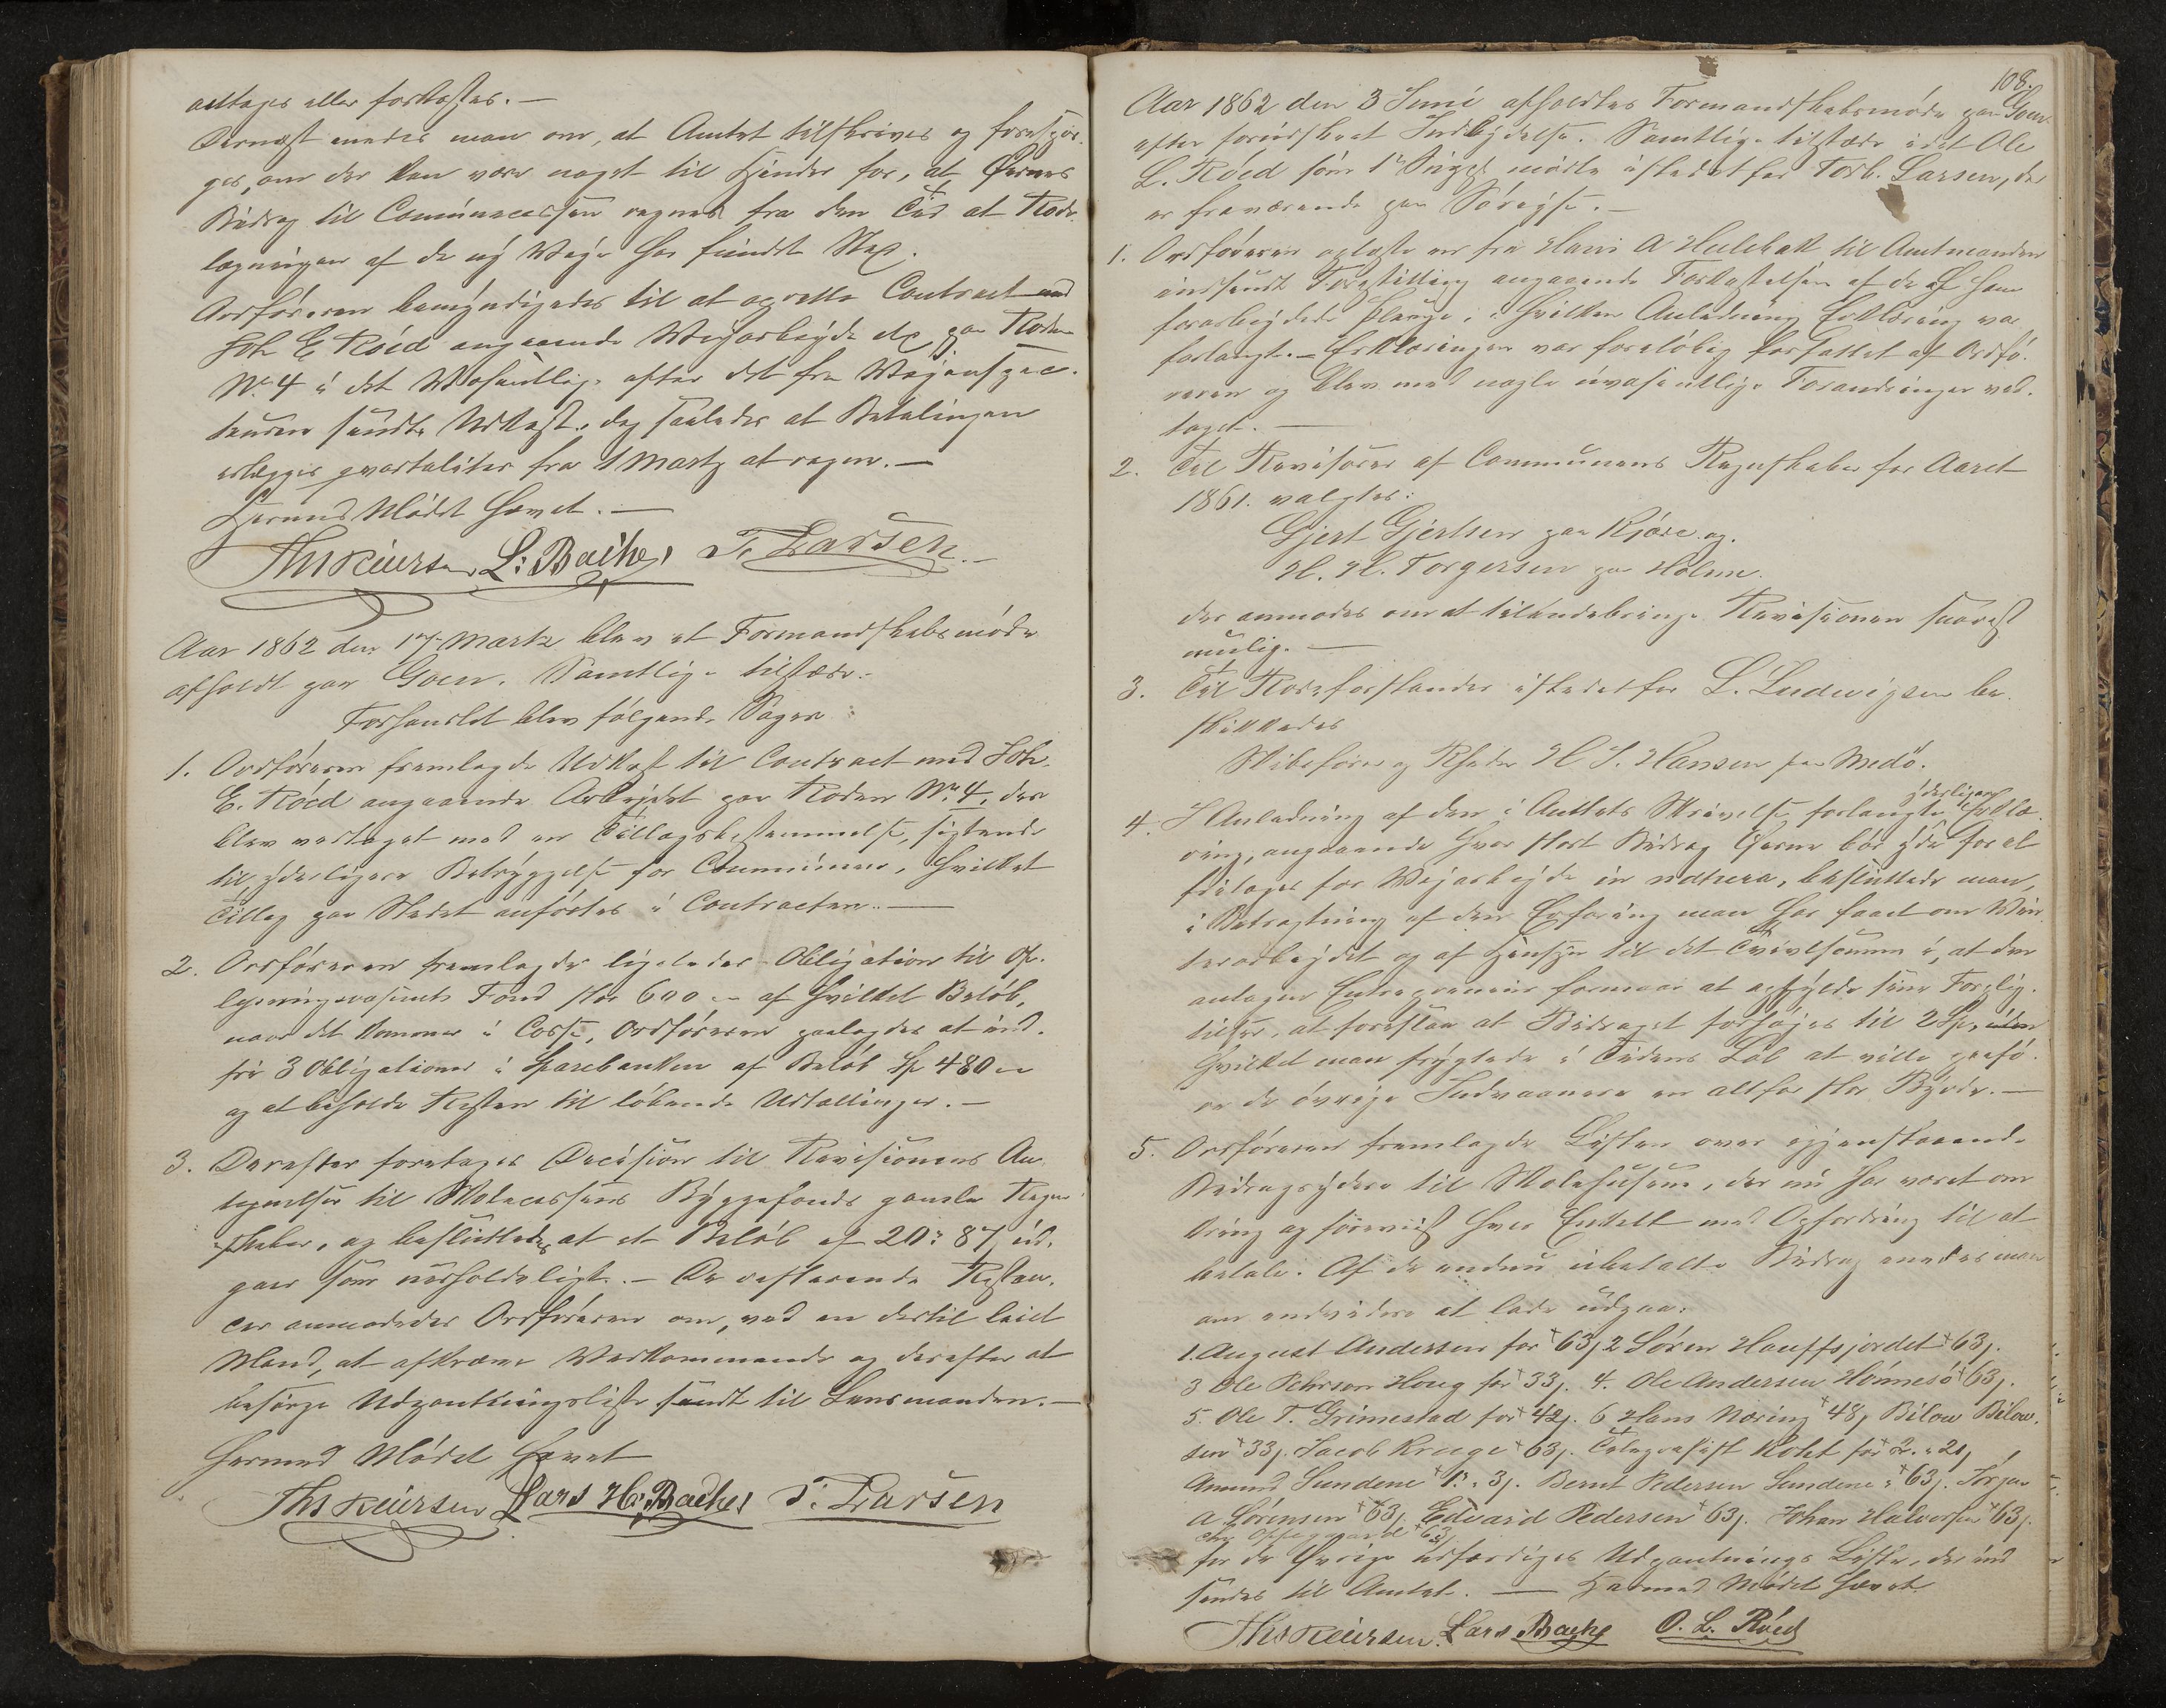 antages eller forkastes. —
Dernæst enedes man om, at Amtet tilskrives og forespør-
ges, om der kan være noget til Hinder for, at Øernes
Bidrag til Communecassen regnes fra den Tid at Rode-
lægningen af de ny Veye har fundet Sted.
Ordføreren bemyndigedes til at oprette Contract med
Joh E. Röed angaaende Vejarbeyde paa Roden
No 4 i det Væsentlige efter det fra Vejinspec-
teuren sendte Udkast, dog saaledes at Betalingen
erlægges qvartaliter fra 1 Martz at regne. —
Hermed Mödet hævet. —
Ths Reiersen L: Bache T. Larsen
Aar 1862 den 17 Martz blev et Formandskabsmöde
afholdt paa Goen. Samtlige tilstæde.
Forhandlet blev fölgende Sager:
1. Ordföreren fremlagde Udkast til Contract med Joh.
E. Röed angaaende Arbeydet paa Roden No 4, der
blev vedtaget med en Tillægsbestemmelse, sigtende
til yderligere Betryggelse for Communen, hvilket
Tillæg paa Stedet anförtes i Contracten. —
2. Ordföreren fremlagde ligeledes Obligation til Op-
lysningsvæsenets Fond stor 600 af hvilket Belöb,
naar det kommer i Casse, Ordföreren paalagdes at ind-
fri 3 Obligationer i Sparebanken af Belöb Sp 480
og at beholde Resten til löbende Udtællinger. —
3. Derefter foretoges Decision til Revisionens An-
tegnelser til Skolecassens Byggefonds gamle Regn-
skaber, og besluttedes at et Belöb af 20: 87 ud-
gaar som uerholdeligt. — De resterende Restan-
cer anmodedes Ordföreren om, ved en dertil leiet
Mand, at afkræve Vedkommende og derefter at
besörge Udpantningsliste sendt til Lensmanden. —
Hermed Mödet hævet
Ths Reiersen Lars Hs. Bache T. Larsen
108.
Aar 1862 den 3 Juni afholdtes Formandskabsmöde paa Goen
efter forudskeet Indbydelse. Samtlige tilstæde idet Ole
L. Röed som 1ste Supl mödte istedetfor Torb. Larsen, der
er fraværende paa Söreyse. —
1. Ordföreren oplæste en fra Hans A Hulebak til Amtmanden
indsendt Forestilling angaaende Forkastelsen af de af ham
forarbeydede Plouge, i hvilken Anledning Erklæring var
forlangt. — Erklæringen var foreløbig forfattet af Ordfö-
reren og blev med nogle uvæsentlige Forandringer ved-
taget. —
2. Til Revisorer af Communens Regnskaber for Aaret
1861. valgtes:
Gjert Gjertsen paa Kjære og
H. H. Torgersen paa Holme.
der anmodes om at tilendebringe Revisionen snarest
mulig. —
3. Til Rodeforstander istedetfor L. Ludwigsen be-
skikkedes
Skibsförer og Rheder H S. Hansen paa Medö.
4. I Anledning af den i Amtets Skrivelse forlangte yderligere Erklæ-
ring, angaaende hvor stort Bidrag Øerne bör yde for at
fritages for Vejarbeyde in natura, besluttede man,
i Betragtning af den Erfaring man har faaet om Vin-
terarbeydet og af Hensyn til det Tvivlsomme i, at den
antagne Entrepreneur formaar at opfylde sine Forplig-
telser, at foreslaa at Bidraget forhöjes til 2 Sp, uden
hvilket man frygtede i Tidens Löb at ville paafö-
re de övrige Indvaanere en altfor stor Byrde. —
5. Ordföreren fremlagde Listen over igjenstaaende
Bidragsydere til Skolehusene, der nu har været om-
bring og foreviist hver Enkelt med Opfordring til at
betale. Af de endnu ubetalte Bidrag enedes man
om endvidere at lade udgaa:
1. August Andersen for 63 β 2 Sören Hauffsjordet 63 β.
3 Ole Pehrson Houg for 33 β. 4. Ole Andersen Hönnesö 63 β.
5. Ole T. Grimestad for 42 β. 6 Hans Næring 48 β Bilow Bilow-
sen 33 β. Jacob Kruge 63 β. Telegrafist Kohl for 2. 21 β
Amund Sundene 1. 3 β. Bernt Pedersen Sundene 63 β. Jörgen
A Sörensen 63 β. Edvard Pedersen 63 β. Johan Halversen 63 β.
Chr Oppegaard 63
for de Övrige udfærdiges Udpantnings Liste, der ind-
sendes til Amtet. — Hermed Mödet hævet
Ths Reiersen. Lars Bache O. L. Röed